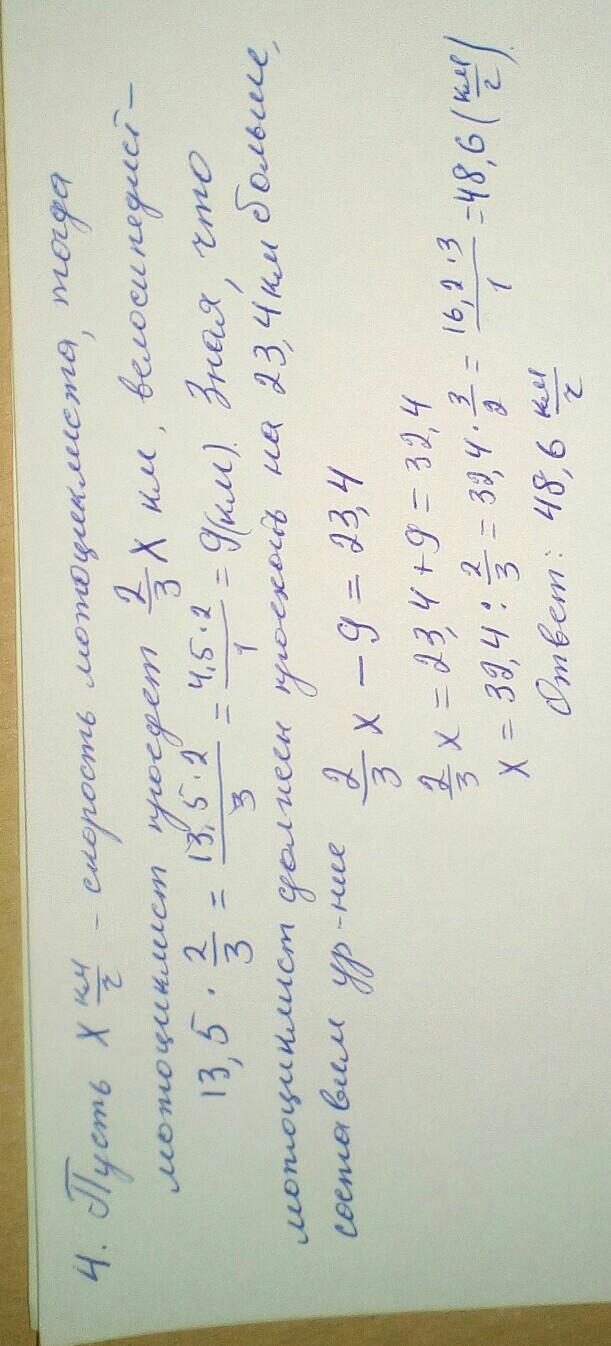 4. Пусть x км/г - скорость мотоциклиста, тогда
мотоциклист проедет 2/3 x км, велосипедист -
13,5 · 2/3 = 13,5·2/3 = 4,5·2/1 = 9(км). Зная, что
мотоциклист должен проехать на 23,4 км больше,
составим ур-ние 2/3 x - 9 = 23,4
2/3 x = 23,4 + 9 = 32,4
x = 32,4 : 2/3 = 32,4 · 3/2 = 16,2·3/1 = 48,6 (км/г).
Ответ: 48,6 км/ч